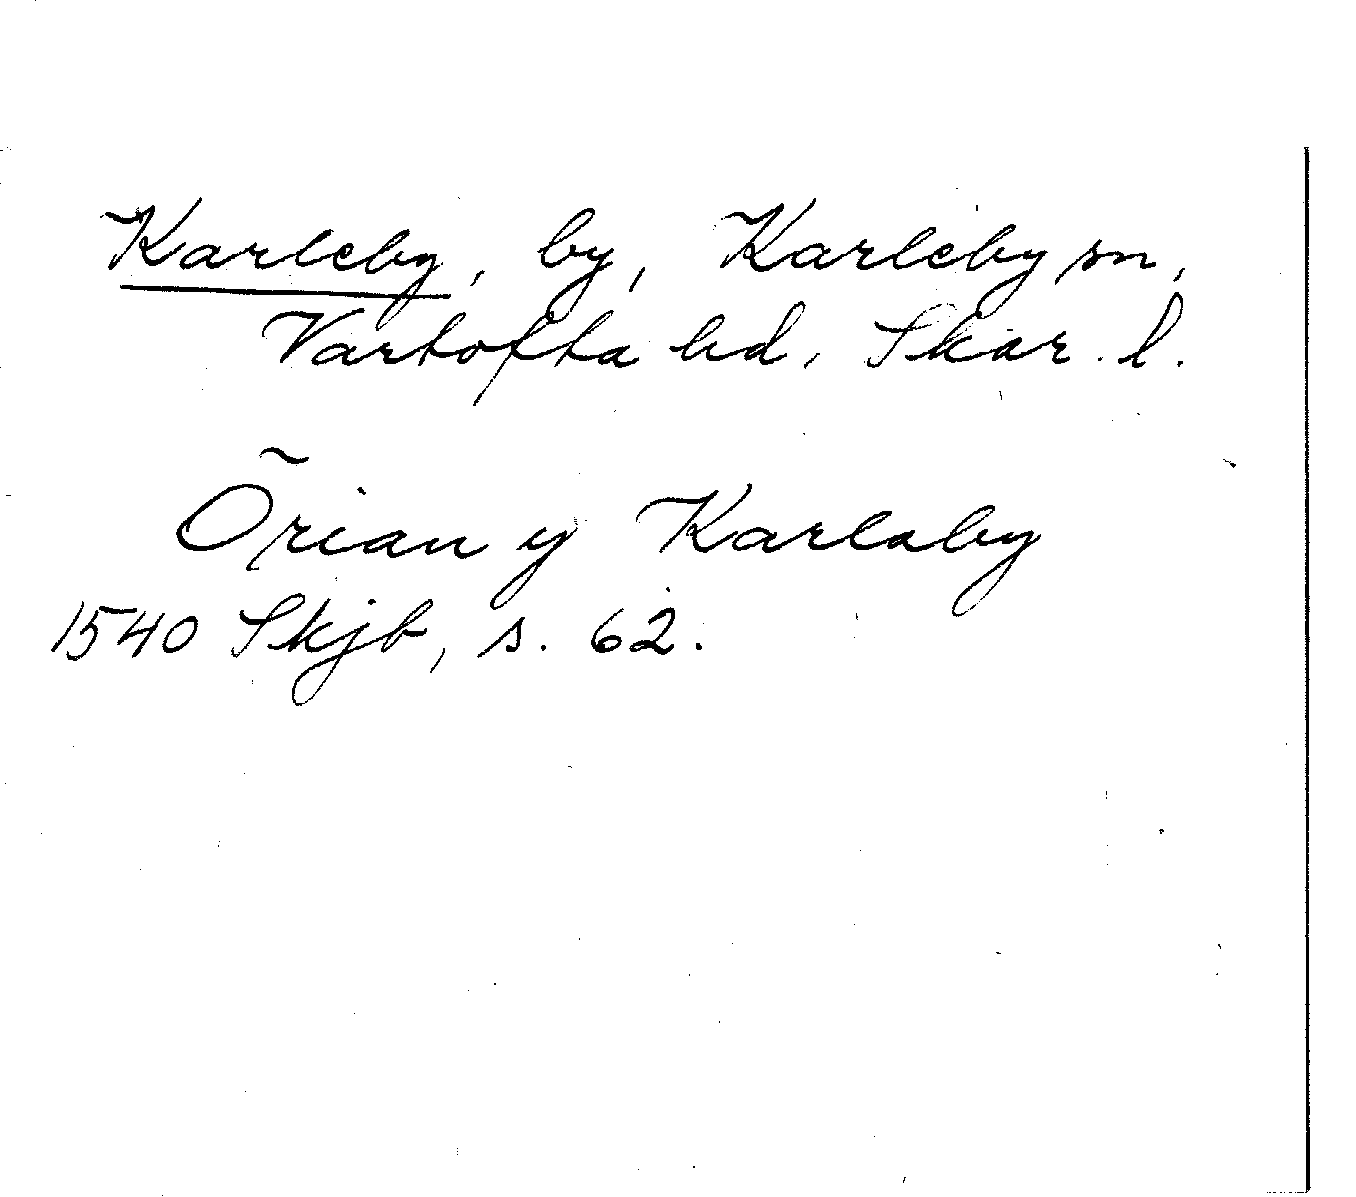 Karleby, by, Karleby sn,
Vartofta hd, Skar. l.
Õrian y Karlaby
1540 Skjb, s. 62.